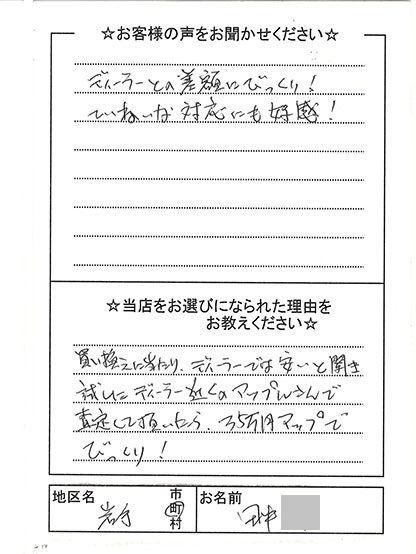 ☆お客様の声をお聞かせください☆
ディーラーとの差額にびっくり!
ていねいな対応にも好感!
☆当店をお選びになられた理由を
お教えください☆
買い換えに当たり、ディーラーでは安いと聞き
試しにディーラー近くのアップルさんで
査定して頂いたら、35万円アップで
びっくり!
地区名
岩手
市
町
村
お名前
田中